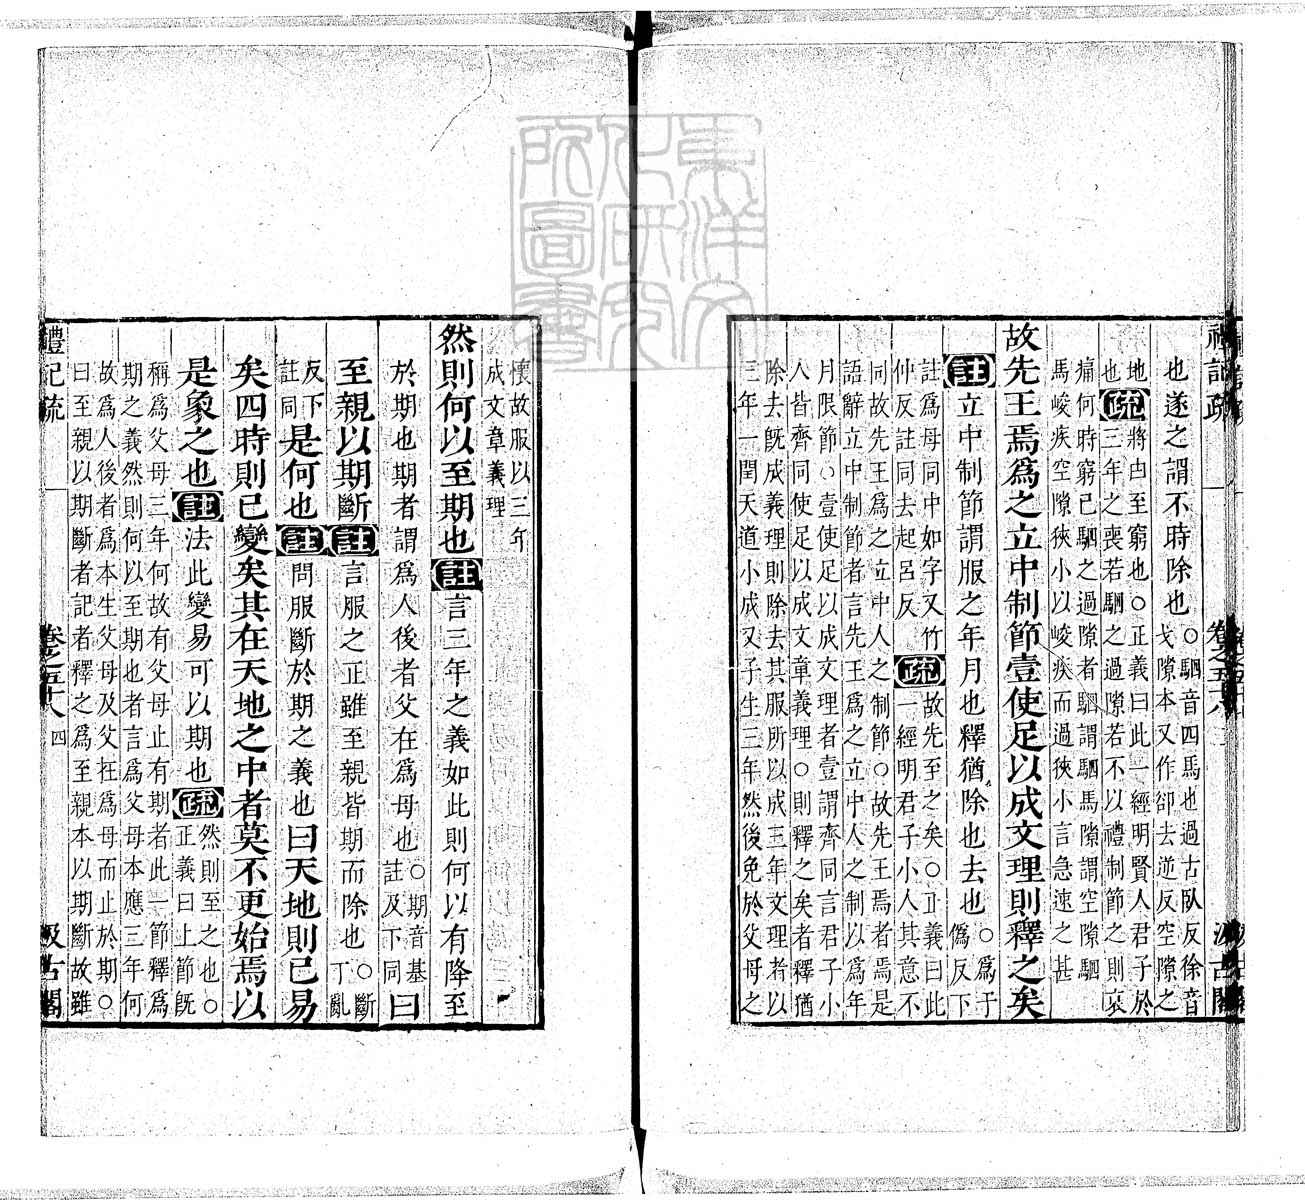 禮記疏 卷之五十八 三 汲古閣
也遂之謂不時除也○駟音四馬也過古臥反徐音
戈隙本又作郤去逆反空隙之
地將由至窮也○正義曰此一經明賢人君子於
也疏三年之喪若駟之過隙若不以禮制節之則哀
痛何時窮已駟之過隙者駟謂駟馬隙謂空隙駟
馬峻疾空隙狹小以峻疾而過狹小言急速之甚
故先王焉爲之立中制節壹使足以成文理則釋之矣
註立中制節謂服之年月也釋猶除也去也○爲于
僞反下
註爲母同中如字又竹
仲反註同去起呂反
疏故先至之矣○正義曰此
一經明君子小人其意不
同故先王爲之立中人之制節○故先王焉者焉是
語辭立中制節者言先王爲之立中人之制以爲年
月限節○壹使足以成文理者壹謂齊同言君子小
人皆齊同使足以成文章義理○則釋之矣者釋猶
除去旣成義理則除去其服所以成三年文理者以
三年一閏天道小成又子生三年然後免於父母之
懷故服以三年
成文章義理
然則何以至期也註言三年之義如此則何以有降至
於期也期者謂爲人後者父在爲母也○期音基
註及下同
曰
至親以期斷註言服之正雖至親皆期而除也○斷
丁亂
反下
註同
是何也註問服斷於期之義也曰天地則已易
矣四時則已變矣其在天地之中者莫不更始焉以
是象之也註法此變易可以期也疏然則至之也○
正義曰上節旣
稱爲父母三年何故有父母止有期者此一節釋爲
期之義然則何以至期也者言爲父母本應三年何
故爲人後者爲本生父母及父在爲母而止於期○
曰至親以期斷者記者釋之爲至親本以期斷故雖
禮記疏 卷之五十八 四 汲古閣